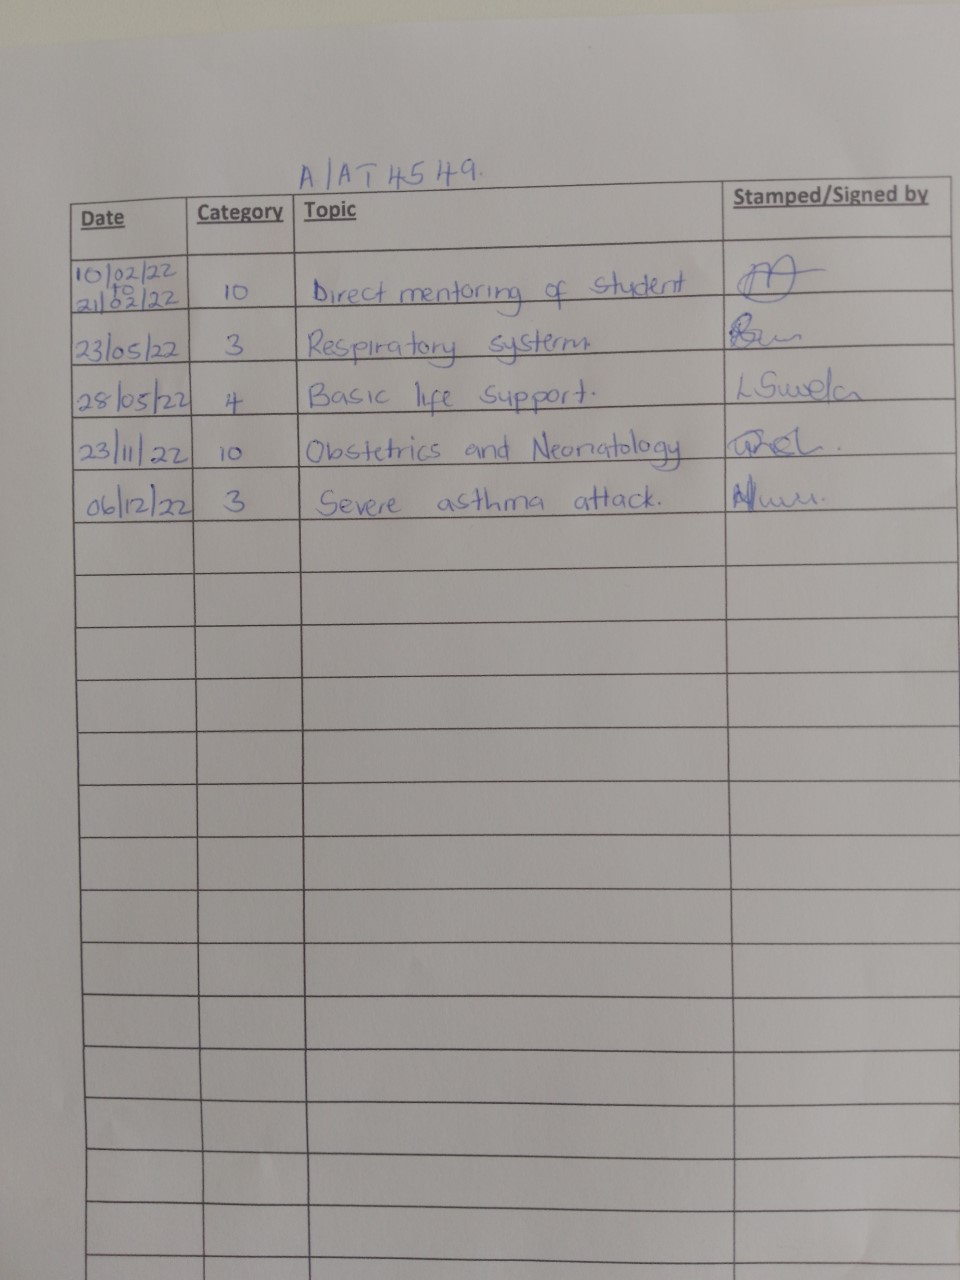 A/AT4549.
Date Category Topic Stamped/Signed by
10/02/22
to
21/02/22 10 Direct mentoring of student
23/05/22 3 Respiratory systerm
28/05/22 4 Basic life support.
23/11/22 10 Obstetrics and Neonatology
06/12/22 3 Severe asthma attack.